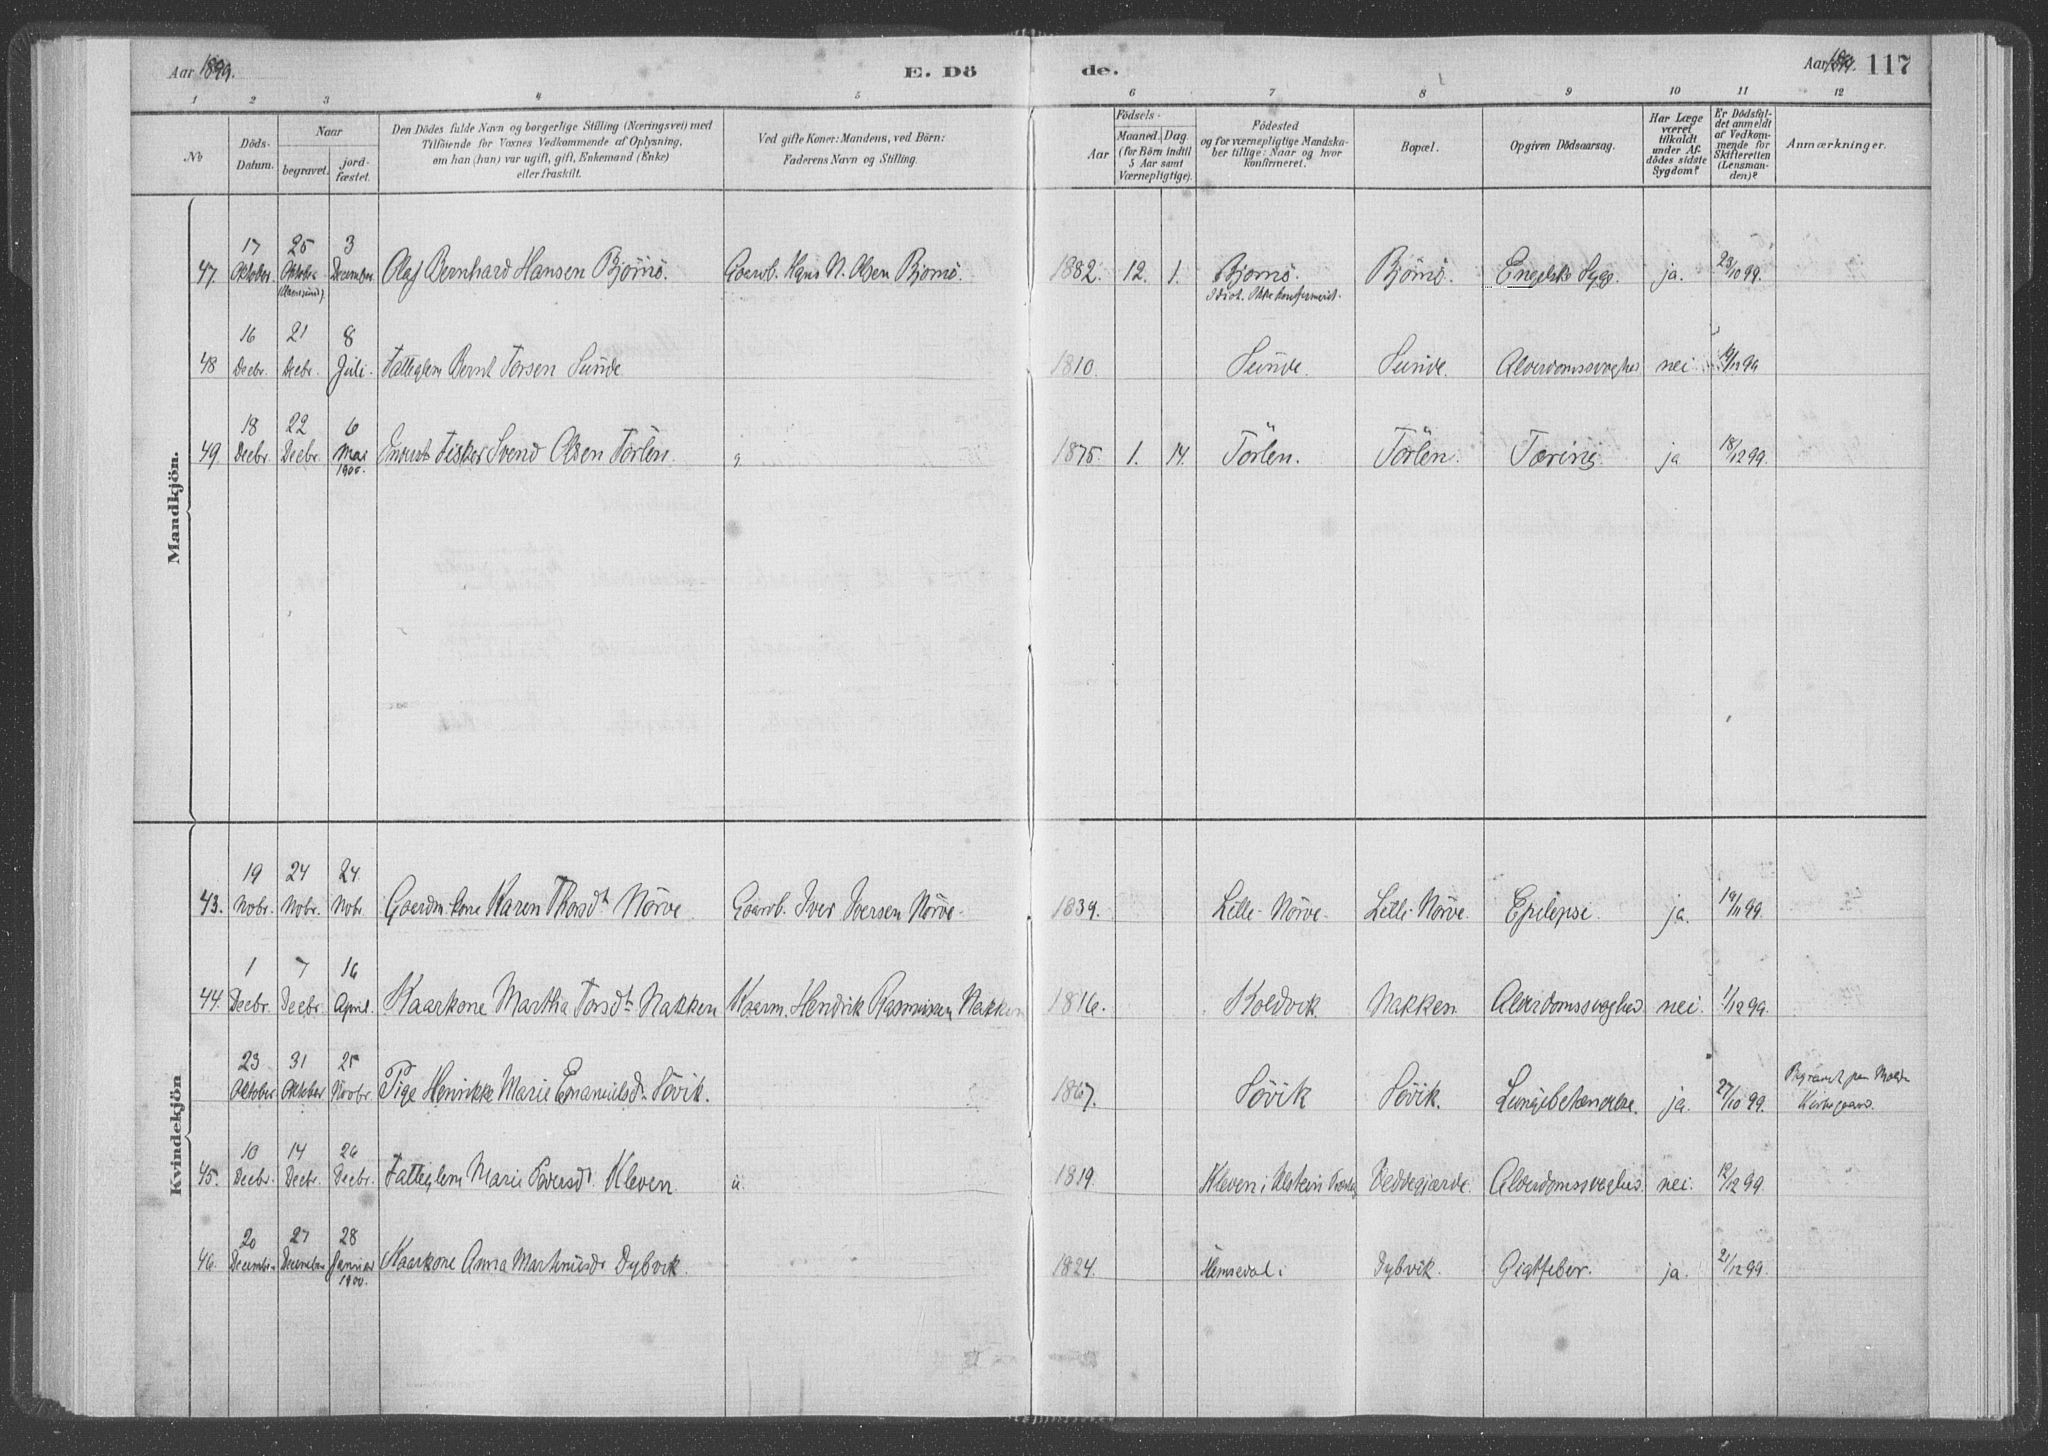 Aar 1899.
E. Dö
de.
Aar 1899. 117
1 2 3 4 5 6 7 8 9 10 11 12
No
Döds-Datum.
Naar
begravet.
jord-fæstet.
Den Dödes fulde Navn og borgerlige Stilling (Næringsvei) med
Tilföiende for Voxnes Vedkommende af Oplysning,
om han (hun) var ugift, gift, Enkemand (Enke)
eller fraskilt.
Ved gifte Koner: Mandens, ved Börn:
Faderens Navn og Stilling.
Födsels-
Aar
Maaned. Dag.
(for Börn indtil
5 Aar samt
Værnepligtige).
Födested
og for værnepligtige Mandska-
ber tillige: Naar og hvor
konfirmeret.
Bopæl.
Opgiven Dödsaarsag.
Har Læge
været
tilkaldt
under Af-
dödes sidste
Sygdom?
Er Dödsfal-
det anmeldt
af Vedkom-
mende for
Skifteretten
(Lensman-
den)?
Anmærkninger.
Mandkjön.
17 25 3
47. Oktober. Oktober December. Olaf Bernhard Hansen Bjørnø. Gaardb. Hans N. Olsen Bjørnø. 1882. 12. 1. Bjørnø. Bjørnø. Engelske Syge. ja. 23/10 99.
Idiot. Ikke konfirmeret.
16 21 8
48 Decbr. Decbr. Juli. Fattiglem Bernt Torsen Sunde 1810. Sunde. Sunde. Alderdomssvaghed nei 19/12 99
18 22 6
49. Decbr. Decbr. Mai Fisker Svend Olsen Tørlen. 1875. 1. 14. Tørlen. Tørlen. Tæring. ja 18/12 99.
1900.
Kvindekjön
19 24 24
43. Novbr. Novbr. Novbr. Gaardm.kone Karen Thorsdt Nørve Gaardb. Iver Iversen Nørve. 1839. Lille-Nørve. Lille-Nørve. Epilepsi. ja. 19/11 99.
1 7 16
44. Decbr. Decbr. April. Kaarkone Martha Torsdt. Nakken Kaarm. Hendrik Rasmussen Nakken 1816. Koldvik Nakken Alderdomssvaghed nei. 1/12 99.
23 31 25
Oktober Oktober Novbr. Pige Henrikke Marie Emanuelsdr. Søvik. 1867. Søvik Søvik. Lungebetændelse. ja. 27/10 99. Begravet paa Molde
Kirkegaard.
10 14 26
45. Decbr. Decbr. Decbr. Fattiglem Marie Kleven 1819. Kleven i Ulstein Vedde­gjerde. Alderdomssvaghed. nei. 12/12 99.
20 27 28
46. December December Januar Kaarkone Anna Martinusdr Dybvik. 1824. Hemsedal i Dybvik. Gigtfeber. ja. 21/12 99.
1900.